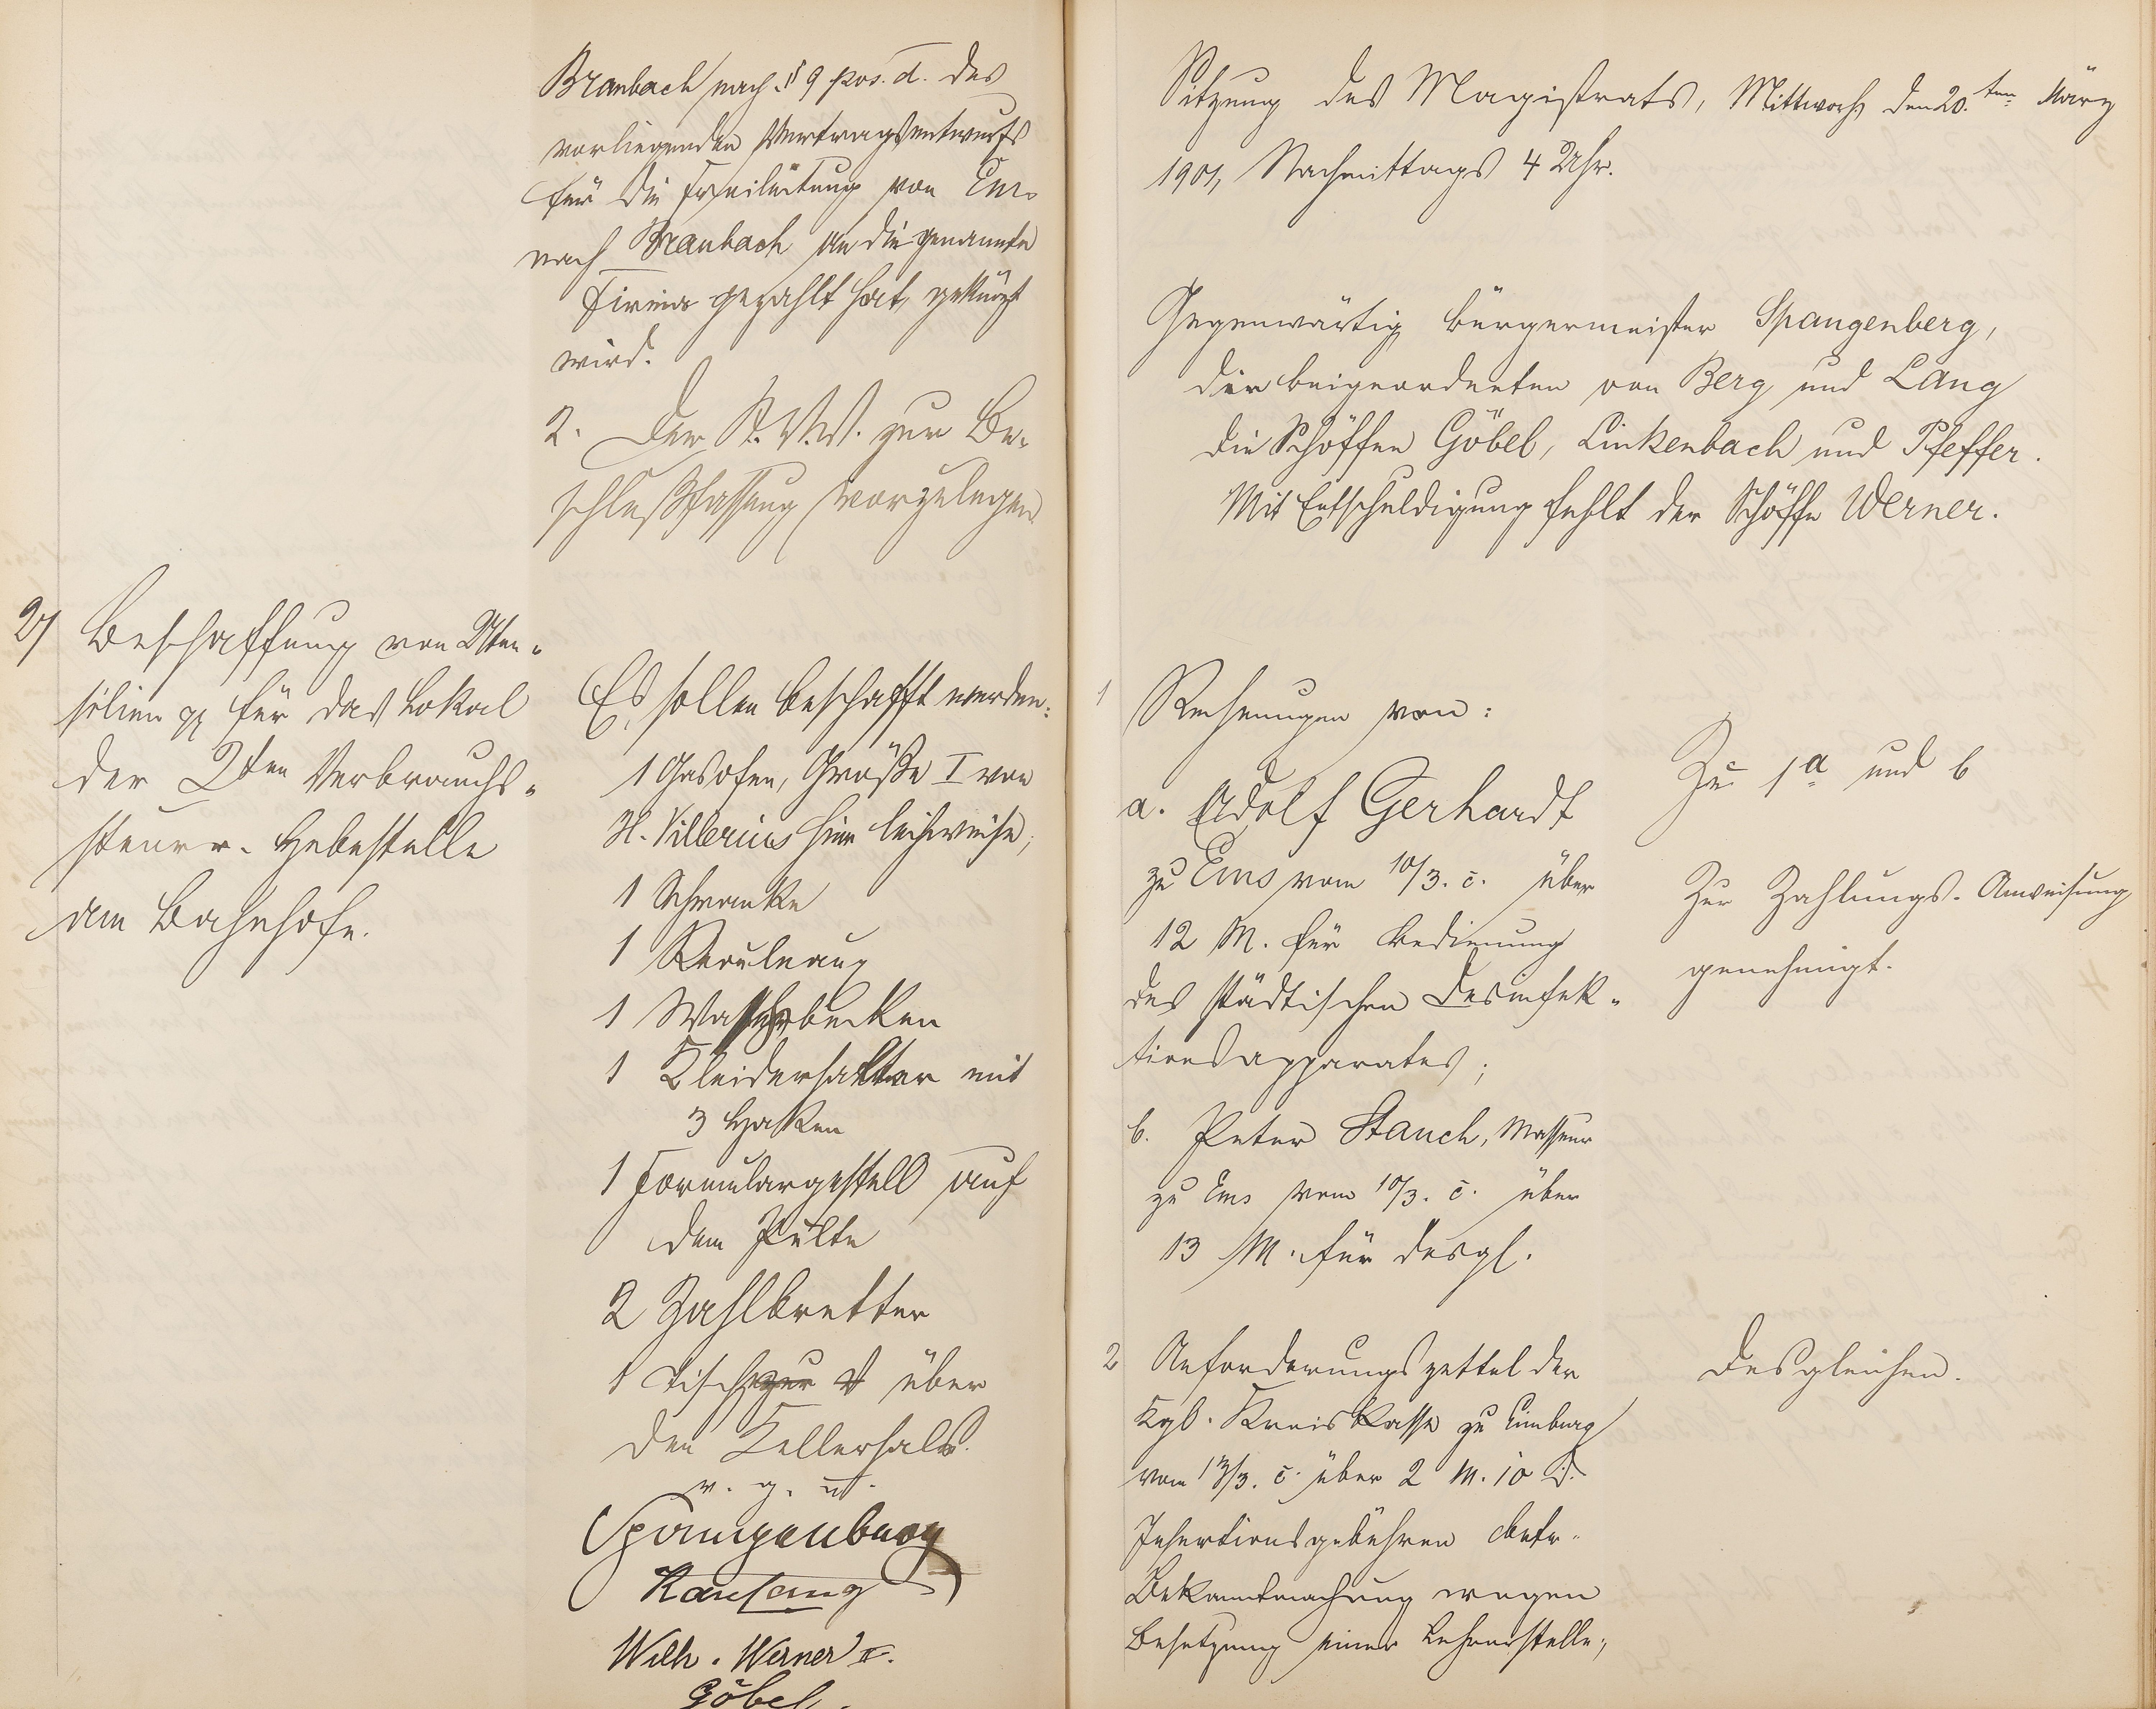 Braubach nach § 9 pos. d. des
vorliegenden Vertragsentwurfs
für die Freileitung von Ems
nach Braubach an die genannte
Firma gezahlt hat, gekürzt
wird.
2. Der St. V. V. zur Be-
schlußfassung vorzulegen.
2) Beschaffung von Uten-
silien pp für das Lokal
der 2ten Verbrauchs-
steuer-Hebestelle
am Bahnhofe.
Es sollen beschafft werden:
1 Gasofen, Größe I von
H. hier leihweise,
1 Schranke
1 Rouleaux
1 Waschbecken
1 Kleiderhalter mit
3 Haken
1 Formulargestell auf
dem Pulte
2 Zahlbretter
1 Tisch zur über
den Kellerhals.
v. g. u.
Spangenberg
Karl Lang
Wilh. Werner II.
Göbel.
Sitzung des Magistrats, Mittwoch den 20.ten März
1901, Nachmittags 4 Uhr.
Gegenwärtig Bürgermeister Spangenberg,
die Beigeordneten von Berg und Lang
die Schöffen Göbel, Linkenbach und Pfeffer.
Mit Entschuldigung fehlt der Schöffe Werner.
1 Rechnungen von:
a. Adolf Gerhardt
zu Ems vom 10/3. c. über
12 M. für Bedienung
des städtischen Desinfek-
tionsapparates;
b. Peter Stauch, Masseur
zu Ems vom 10/3. c. über
13 M. für desgl.
Zu 1a und b
Zur Zahlungs-Anweisung
genehmigt.
2 Anforderungszettel der
Kgl. Kreiskasse zu Limburg
vom 13/3. c. über 2 M. 10 d.
Insertionsgebühren betr.
Bekanntmachung wegen
Besetzung einer Lehrerstelle;
Desgleichen.